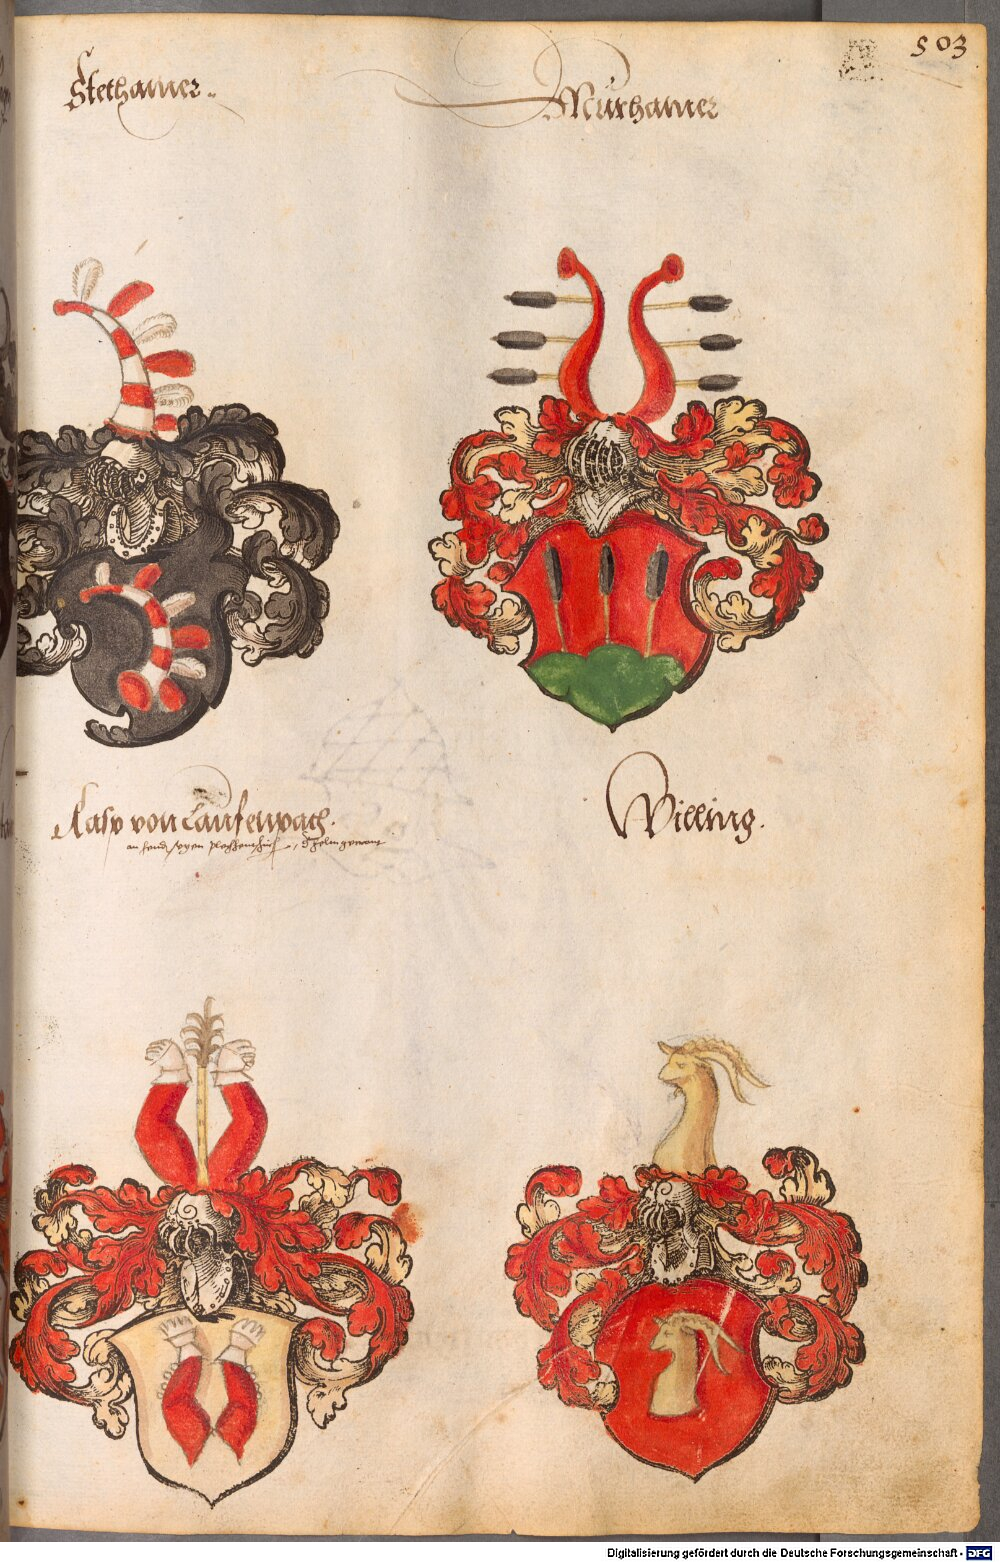 503
Stethamer.
Murhamer
Rasp von Laufenpach.
Willing.
Digitalisierung gefördert durch die Deutsche Forschungsgemeinschaft - DFG